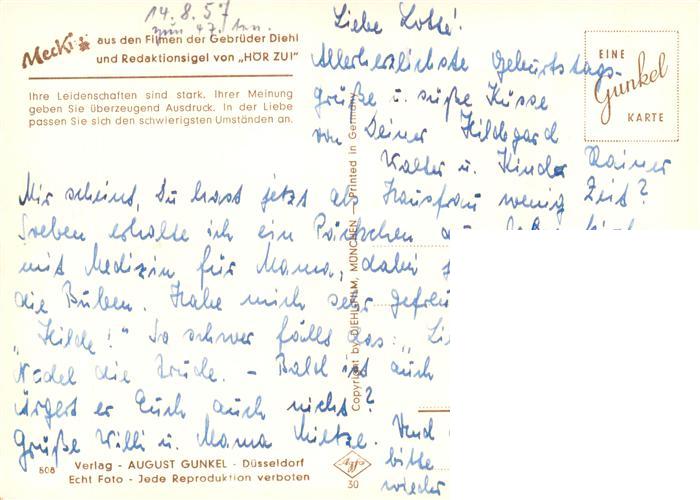 14.8.57
zum 47. ten.
Mecki aus den Filmen der Gebrüder Diehl
und Redaktionsigel von „HÖR ZU!"
Ihre Leidenschaften sind stark. Ihrer Meinung
geben Sie überzeugend Ausdruck. In der Liebe
passen Sie sich den schwierigsten Umständen an.
EINE
Gunkel
KARTE
Liebe Lotte!
Allerherzlichste Geburtstags-
grüße u. süße Küsse
von Deiner Hildegard
Walter u. Kinder Rainer
Mir scheint, Du hast jetzt als Hausfrau wenig Zeit?
Soeben erhalte ich ein Päckchen
mit Medizin für Mama, dabei
die Buben. Habe mich sehr gefreu
„Hilde!" So schwer fällt das: „Li
Nädel die Trude. - Bald ist auch
ärgert er Euch auch nicht?
Grüße Willi u. Mama Mietze. Und
bitte
wieder
Copyright by DIEHLFILM, MÜNCHEN — Printed in Germany
508
Verlag - AUGUST GUNKEL - Düsseldorf
Echt Foto - Jede Reproduktion verboten
Agfa
30